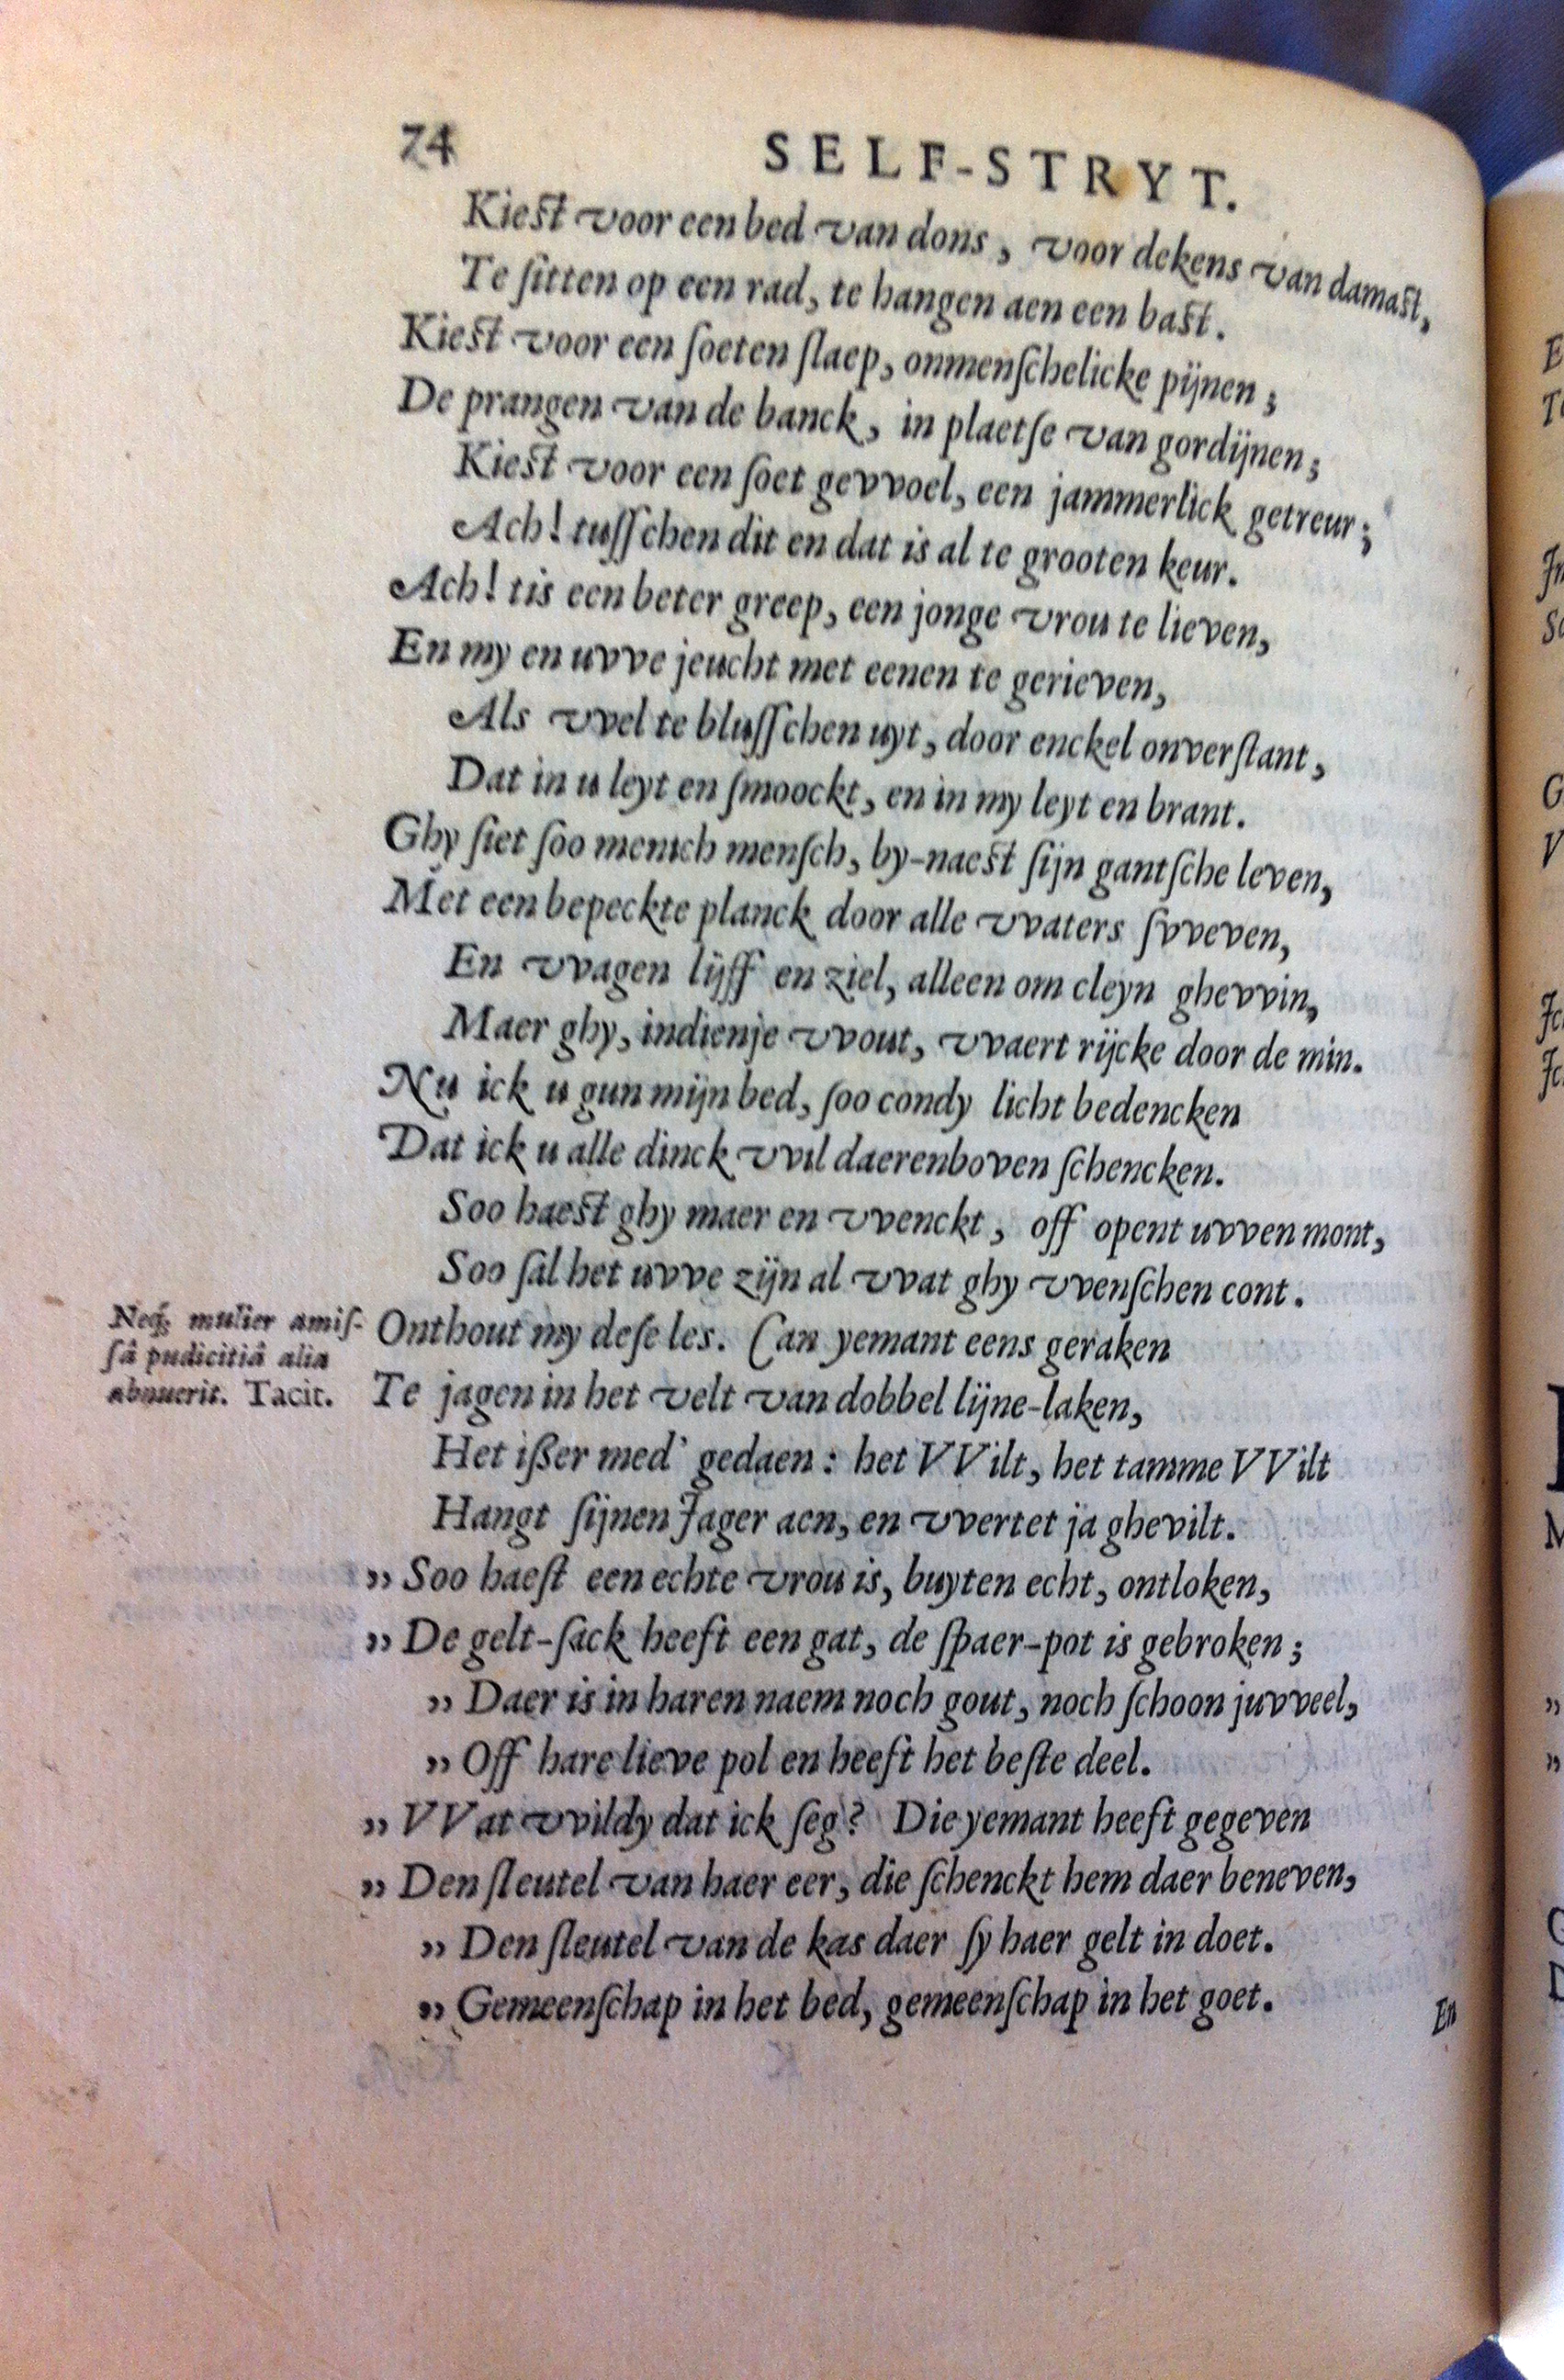 74
SELF-STRYT.
Kiest voor een bed van dons, voor dekens van damast,
Te ſitten op een rad, te hangen aen een bast.
Kiest voor een ſoeten ſlaep, onmenſchelicke pijnen;
De prangen van de banck, in plaetſe van gordijnen;
Kiest voor een ſoet gevvoel, een jammerlick getreur;
Ach! tuſſchen dit en dat is al te grooten keur.
Ach! tis een beter greep, een jonge vrou te lieven,
En my en uvve jeucht met eenen te gerieven,
Als vvel te bluſſchen uyt, door enckel onverſtant,
Dat in u leyt en ſmoockt, en in my leyt en brant.
Ghy ſiet ſoo menich menſch, by-naest ſijn gantſche leven,
Met een bepeckte planck door alle vvaters ſvveven,
En vvagen lijff en ziel, alleen om cleyn ghevvin,
Maer ghy, indienje vvout, vvaert rijcke door de min.
Nu ick u gun mijn bed, ſoo condy licht bedencken
Dat ick u alle dinck vvil daerenboven ſchencken.
Soo haest ghy maer en vvenckt, off opent uvven mont,
Soo ſal het uvve zijn al vvat ghy vvenſchen cont.
Onthout my deſe les. Can yemant eens geraken
Te jagen in het velt van dobbel lijne-laken,
Het ißer med' gedaen: het VVilt, het tamme VVilt
Hangt ſijnen Jager aen, en vvertet ja ghevilt.
„ Soo haeſt een echte vrou is, buyten echt, ontloken,
„ De gelt-ſack heeft een gat, de ſpaer-pot is gebroken;
„ Daer is in haren naem noch gout, noch ſchoon juvveel,
„ Off hare lieve pol en heeft het beſte deel.
„ VVat vvildy dat ick ſeg? Die yemant heeft gegeven
„ Den ſleutel van haer eer, die ſchenckt hem daer beneven,
„ Den ſleutel van de kas daer ſy haer gelt in doet.
„ Gemeenſchap in het bed, gemeenſchap in het goet.
En
Neq; mulier amiſ-
ſâ pudicitiâ alia
abnuerit. Tacit.